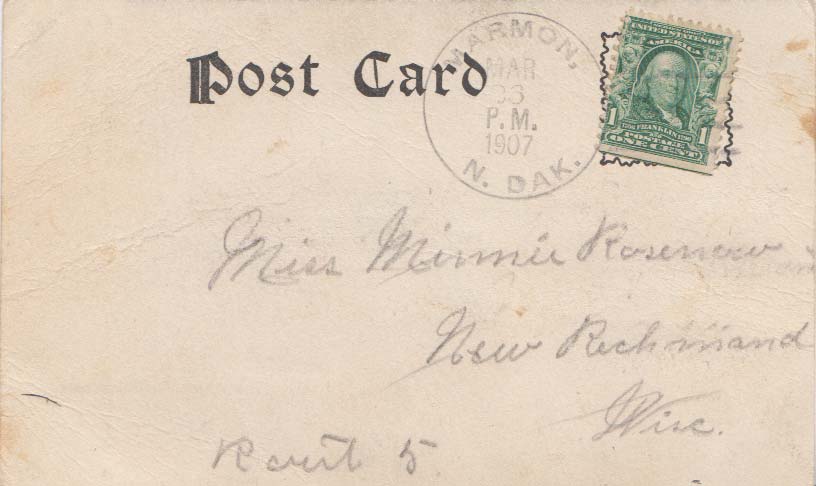 Post Card
MARMON,
MAR
23
P.M.
1907
N. DAK.
UNITED STATES OF
AMERICA
1 FRANKLIN 1
POSTAGE
ONE CENT
Miss Minnie Rosenow
New Rechmond
Wisc.
Rout 5.